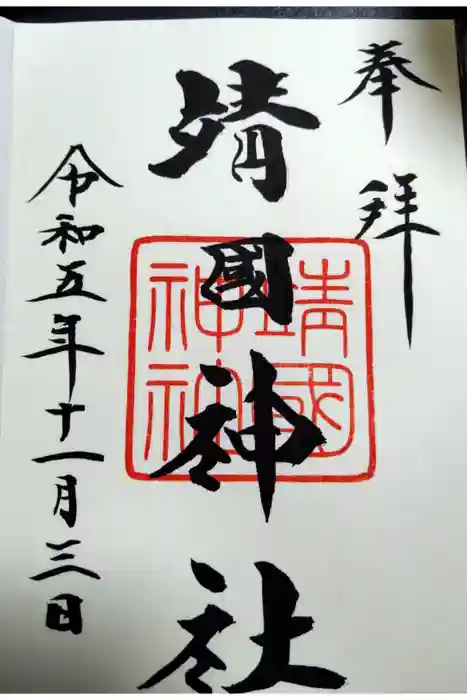 奉拝
靖國神社
靖國
神社
令和五年十一月三日